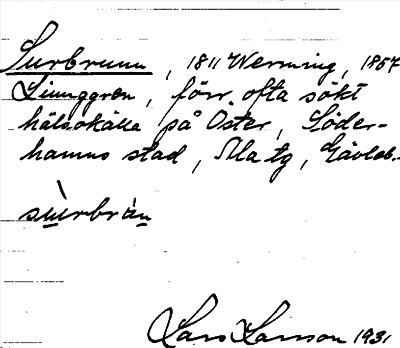 Surbrunn, 1811 Werming, 1857
Ljunggren, förr ofta sökt
hälsokälla på Öster, Söder-
hamns stad, Ala tg, Gävleb.
sùrbrùn
Lars Larsson 1931